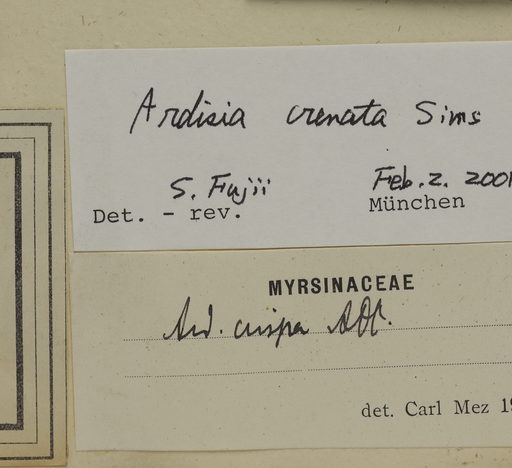 Ardisia crenata Sims
S. Fujii Feb. 2. 2001
Det. - rev. München
MYRSINACEAE
Ard. crispa ADC.
det. Carl Mez 19